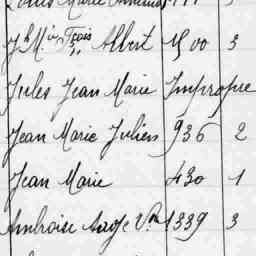 Louis Marie
Jh M. Fçois Albert 1500 3
Jules Jean Marie Impropre
Jean Marie Julien 936 2
Jean Marie 430 1
Ambroise Ange 1339 3